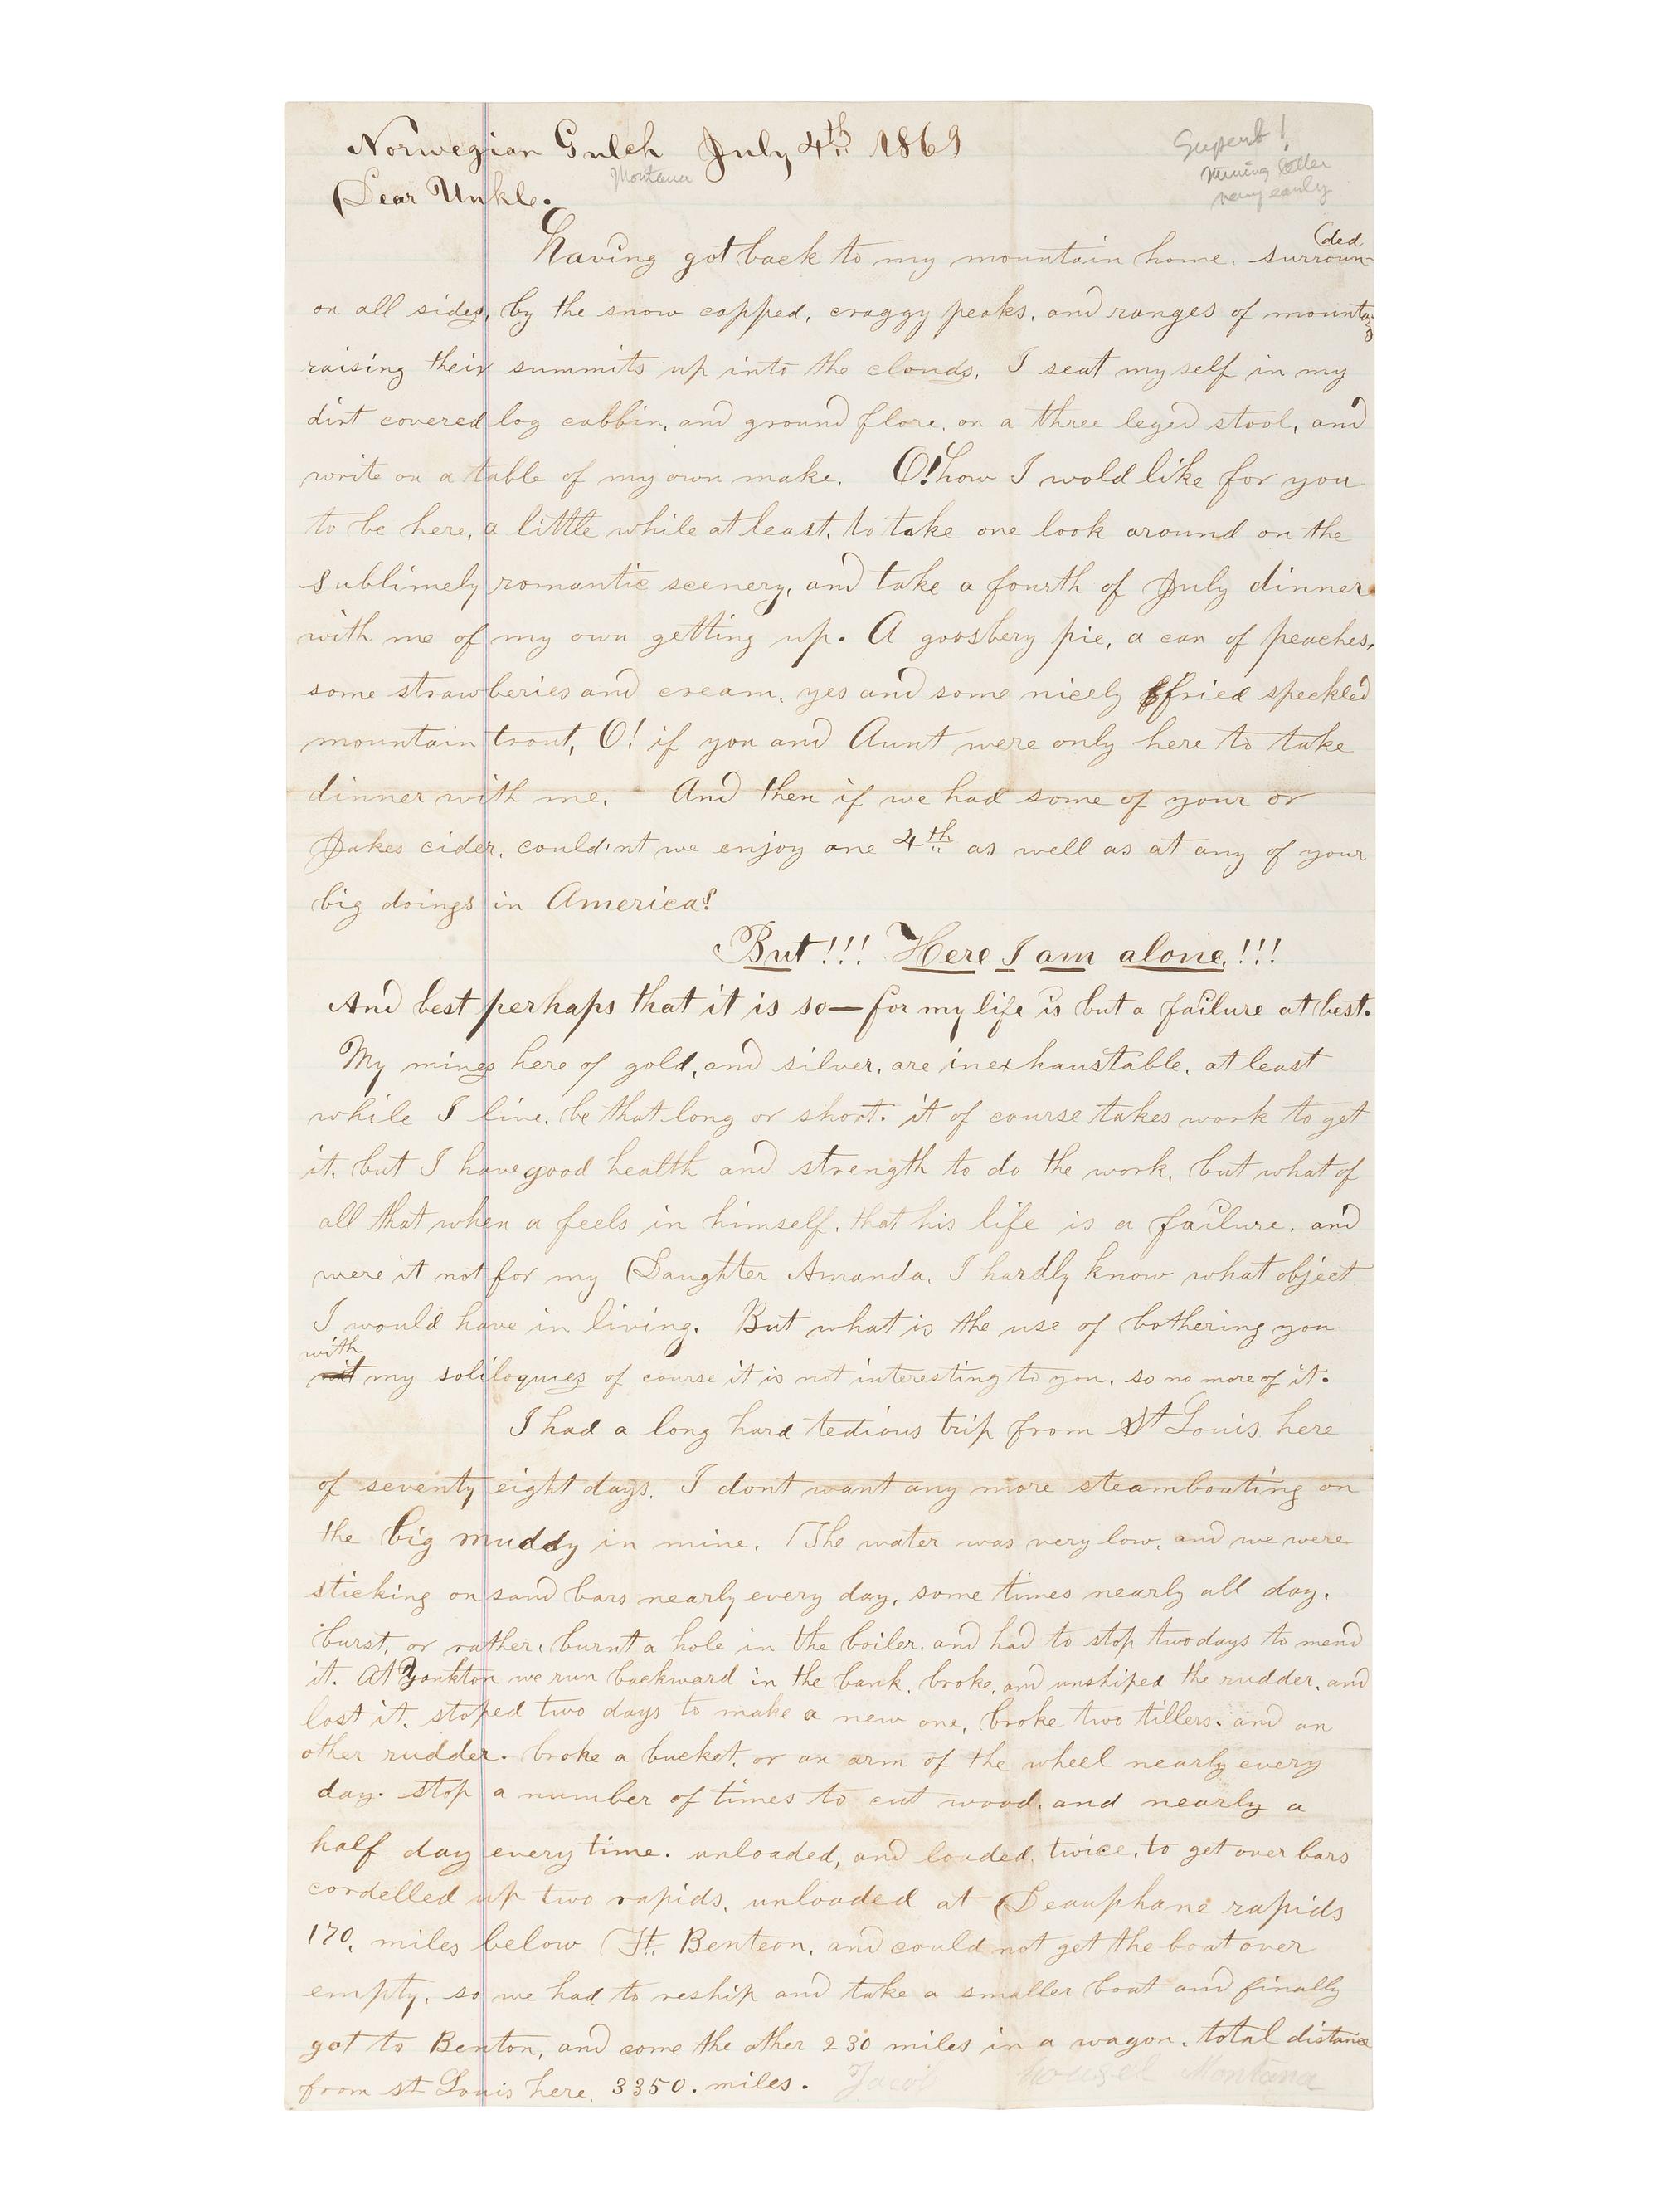 Norwegian Gulch July 4th 1869
Montana
Superb!
mining letter
very early
Dear Unkle.
Having got back to my mountain home. surroun-
(ded
on all sides, by the snow capped, craggy peaks, and ranges of mountains
raising their summits up into the clouds. I seat myself in my
dirt covered log cabbin, and ground flore, on a three leged stool, and
write on a table of my own make. O! how I wold like for you
to be here, a little while at least, to take one look around on the
sublimely romantic scenery, and take a fourth of July dinner
with me of my own getting up. A goosbery pie, a can of peaches,
some strawberies and cream, yes and some nicely fried speckled
mountain trout, O! if you and Aunt were only here to take
dinner with me. And then if we had some of your or
Jakes cider, could'nt we enjoy one 4th as well as at any of your
big doings in America?
But!!! Here I am alone.!!!
And best perhaps that it is so—for my life is but a failure at best.
My mines here of gold, and silver, are inexhaustable, at least
while I live, be that long or short. it of course takes work to get
it, but I have good health and strength to do the work, but what of
all that when a feels in himself, that his life is a failure, and
were it not for my Daughter Amanda, I hardly know what object
I would have in living. But what is the use of bothering you
with
my soliloquies of course it is not interesting to you, so no more of it.
I had a long hard tedious trip from St Louis here
of seventy eight days. I dont want any more steamboating on
the big muddy in mine. The water was very low, and we were
sticking on sand bars nearly every day, some times nearly all day.
burst, or rather, burnt a hole in the boiler, and had to stop two days to mend
it. At Yankton we run backward in the bank, broke, and unshiped the rudder, and
lost it, stoped two days to make a new one, broke two tillers, and an
other rudder. broke a bucket, or an arm of the wheel nearly every
day. stop a number of times to cut wood, and nearly a
half day every time. unloaded, and loaded twice, to get over bars
cordelled up two rapids, unloaded at Deauphane rapids
170, miles below Ft. Benteon, and could not get the boat over
empty, so we had to reship and take a smaller boat and finally
got to Benton, and come the other 230 miles in a wagon. total distance
from st Louis here, 3350. miles. Jacob Housel Montana